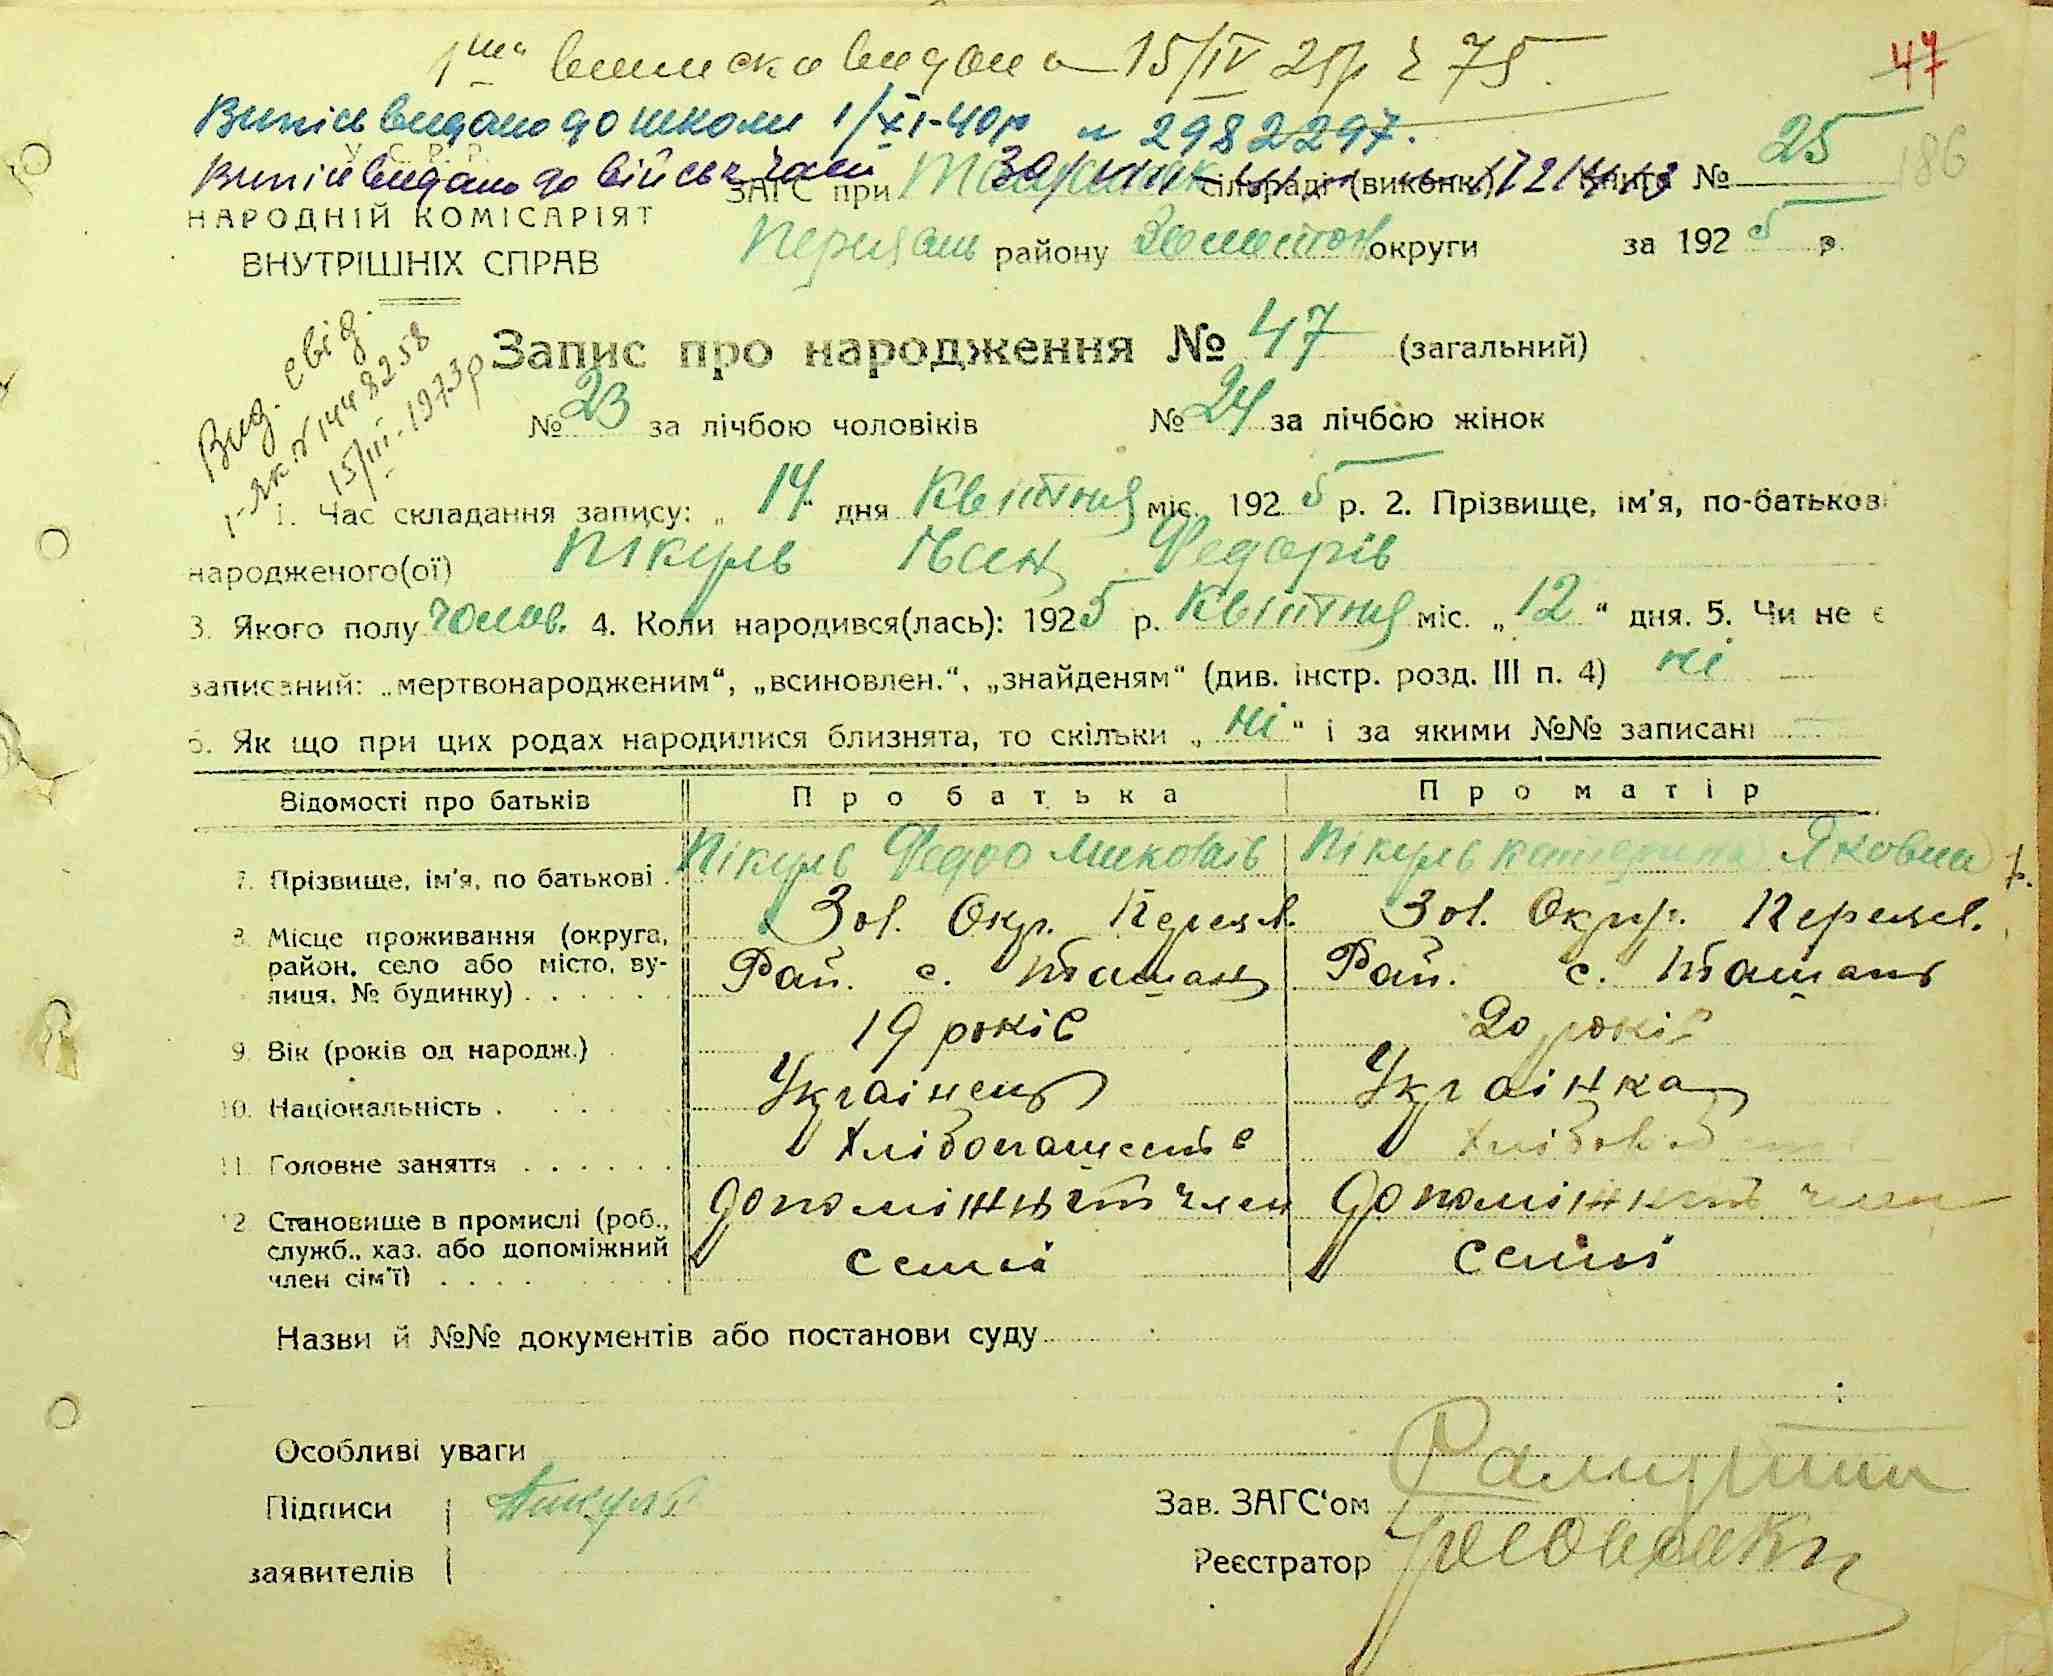 1ша виписка видана 15/IV 25р № 75.
47
Випис видано до школи 1/XI-40р № 2982297.
186
У. С. Р. Р.
Випис видано до військ части
ЗАГС при Ташанськ сільраді (виконк.) Книга № 25
НАРОДНІЙ КОМІСАРІЯТ
ВНУТРІШНІХ СПРАВ
Переяслв району Золотонос округи за 1925 р.
Вид. свід.
І-ЯК № 1448258
15/III-1973р
Запис про народження № 47 (загальний)
№ 23 за лічбою чоловіків № 24 за лічбою жінок
1. Час складання запису: „14“ дня Квітня міс. 1925 р. 2. Прізвище, ім'я, по-батькові
народженого(ої) Пікуль Іван Федорів
3. Якого полу Чолов. 4. Коли народився(лась): 1925 р. Квітня міс. „12“ дня. 5. Чи не є
записаний: „мертвонародженим“, „всиновлен.“, „знайденям“ (див. інстр. розд. III п. 4) ні
6. Як що при цих родах народилися близнята, то скільки „ні“ і за якими №№ записані
Відомості про батьків Про батька Про матір
7. Прізвище, ім'я, по батькові Пікуль Федор Миколаїв Пікуль Катерина Яковна
8. Місце проживання (округа, Зол. Окр. Переял. Зол. Окр. Переял.
район, село або місто, ву- Рай. с. Ташань Рай. с. Ташань
лиця, № будинку)
9. Вік (років од народж.) 19 років 20 років
10. Національність Українець Українка
11. Головне заняття Хлібопашест.
12. Становище в промислі (роб., допоміжн член допоміжн член
служб., хаз. або допоміжний семьї семьї
член сім'ї)
Назви й №№ документів або постанови суду
Особливі уваги
Підписи Пикуль Зав. ЗАГС'ом
заявителів Реєстратор